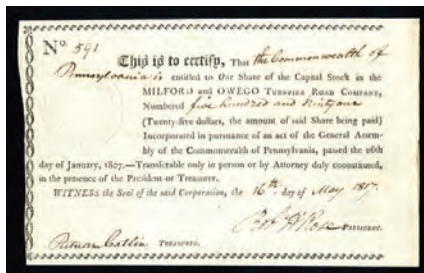 No. 591
This is to certify, That the Commonwealth of
Pennsylvania is entitled to One Share of the Capital Stock in the
MILFORD and OWEGO TURNPIKE ROAD COMPANY,
Numbered five hundred and ninty one
(Twenty-five dollars, the amount of said Share being paid)
Incorporated in pursuance of an act of the General Assem-
bly of the Commonwealth of Pennsylvania, passed the 26th
day of January, 1807.—Transferable only in person or by Attorney duly constituted,
in the presence of the President or Treasurer.
WITNESS the Seal of the said Corporation, the 16th day of May 1817.
Robt H Rose PRESIDENT.
Putnam Catlin TREASURER.